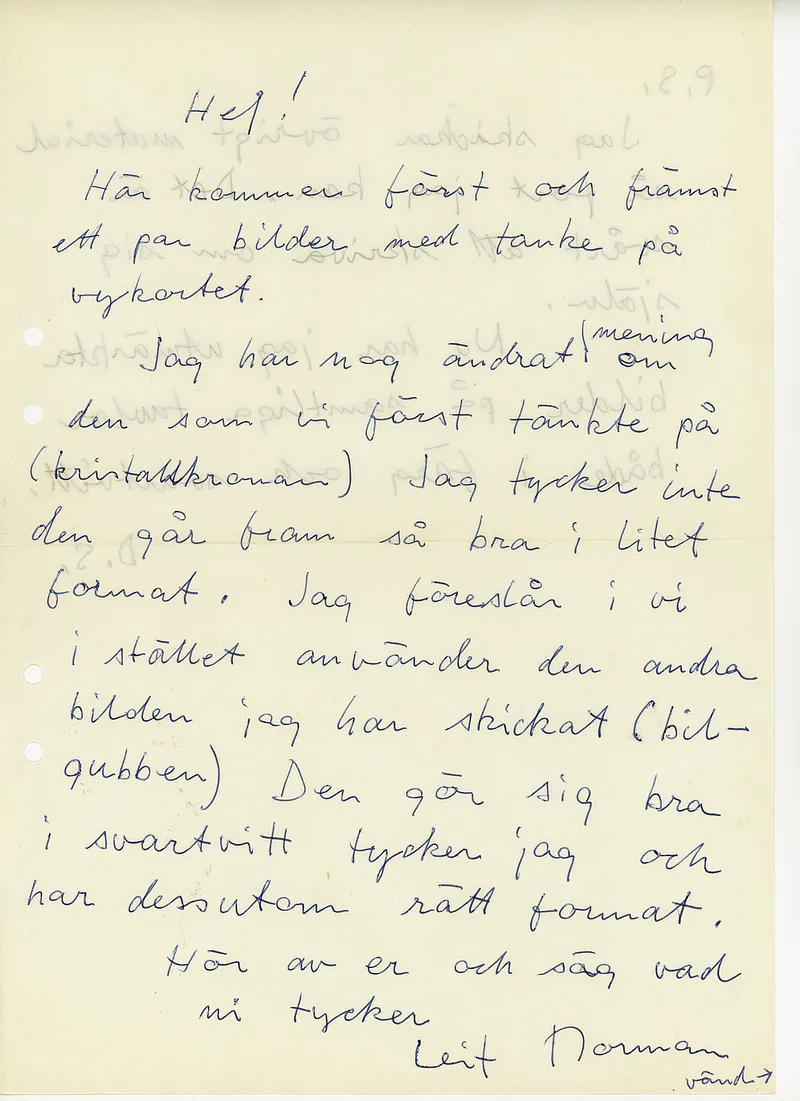 Hej!
Här kommer först och främst
ett par bilder med tanke på
vykortet.
Jag har nog ändrat mening om
den som vi först tänkte på
(kristallkronan) Jag tycker inte
den går fram så bra i litet
format. Jag föreslår i vi
i stället använder den andra
bilden jag har skickat (bil-
gubben) Den gör sig bra
i svartvitt tycker jag och
har dessutom rätt format.
Hör av er och säg vad
ni tycker
Leif Norman
vänd→